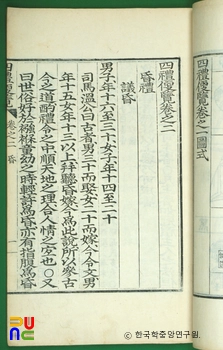 四禮便覽卷之一 圖式
四禮便覽卷之二
昏禮
議昏
男子年十六至三十女子年十四至二十
司馬溫公曰古者男三十而娶女二十而嫁今令文男
年十五女年十三以上竝聽昏嫁今爲此說所以參古
今之道酌禮令之中順天地之理合人情之宜也○又
曰世俗好於襁褓童幼之時輕許爲昏亦有指腹爲昏
卷之二 昏
한국학중앙연구원